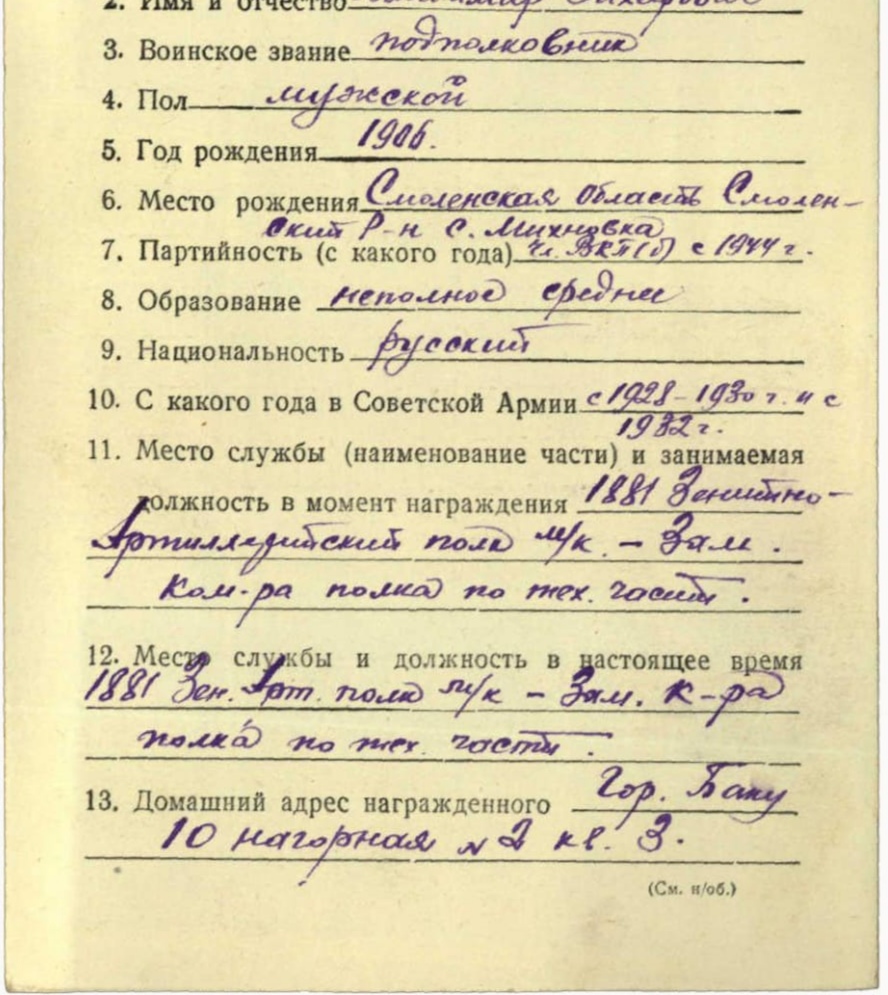 2. Имя и отчество
3. Воинское звание подполковник
4. Пол мужской
5. Год рождения 1906.
6. Место рождения Смоленская область Смолен-
ский р-н с. Михновка
7. Партийность (с какого года) чл. ВКП(б) с 1944 г.
8. Образование неполное среднее
9. Национальность русский
10. С какого года в Советской Армии с 1928-1930 г. и с
1932 г.
11. Место службы (наименование части) и занимаемая
должность в момент награждения 1881 Зенитно-
Артиллерийский полк м/к. – Зам.
Ком-ра полка по тех. части.
12. Место службы и должность в настоящее время
1881 Зен. Арт. полк м/к – Зам. к-ра
полка по тех. части.
13. Домашний адрес награжденного Гор. Баку
10 нагорная № 2 кв. 3.
(См. н/об.)